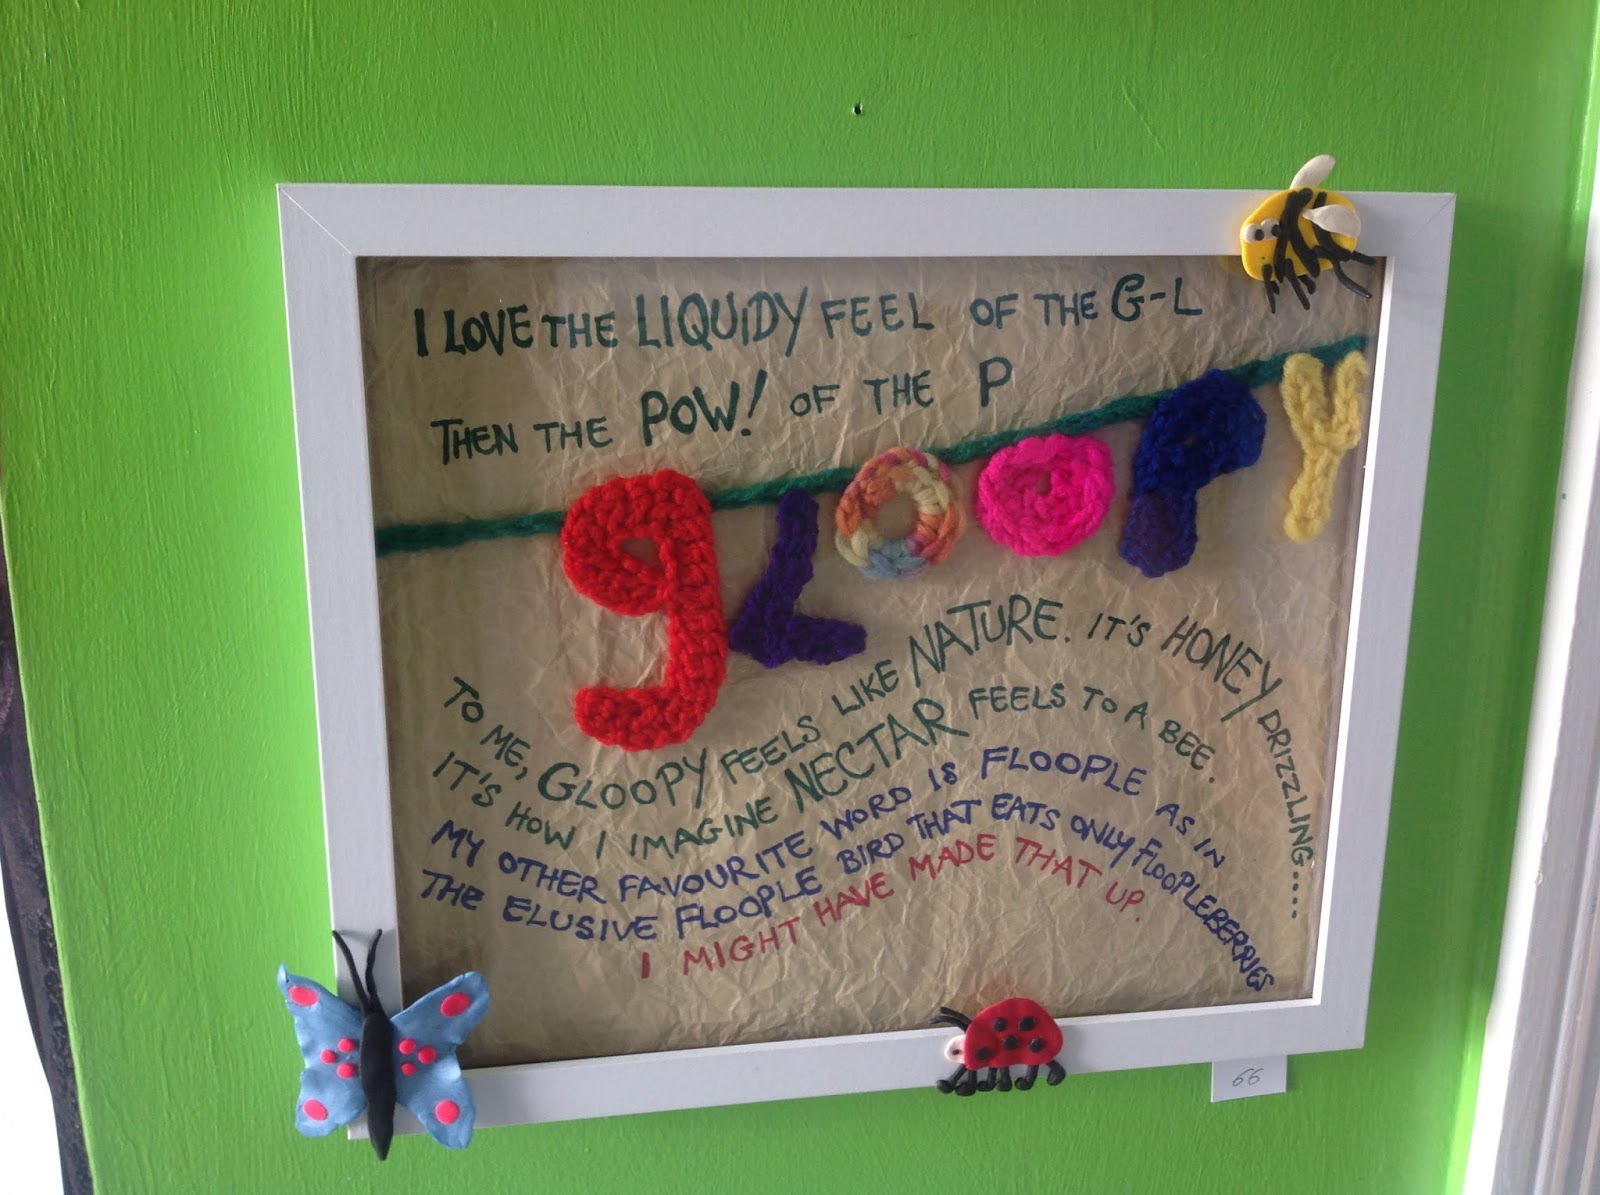 I LOVE THE LIQUIDY FEEL OF THE G-L
THEN THE POW! OF THE P
gLOOPY
TO ME, GLOOPY FEELS LIKE NATURE. IT'S HONEY DRIZZLING.....
IT'S HOW I IMAGINE NECTAR FEELS TO A BEE.
MY OTHER FAVOURITE WORD IS FLOOPLE AS IN
THE ELUSIVE FLOOPLE BIRD THAT EATS ONLY FLOOPLEBERRIES
I MIGHT HAVE MADE THAT UP.
66